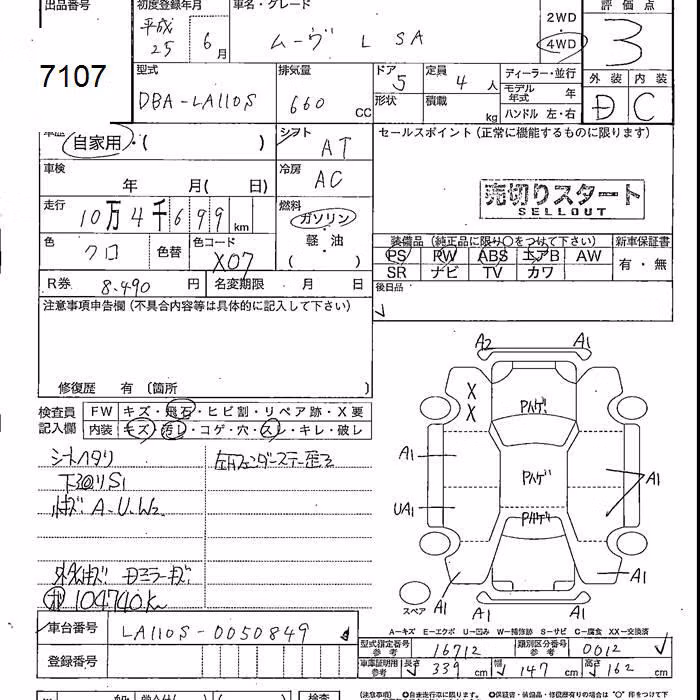 出品番号
7107
初度登録年月
平成
25 6月
車名・グレード
ムーヴ L SA
2WD
4WD
評価点
3
型式
DBA-LA110S
排気量
660 CC
ドア
5
形状
定員
4人
積載
kg
ディーラー・並行
モデル年式 年
ハンドル 左・右
外装 内装
D C
自家用・( )
シフト
AT
セールスポイント(正常に機能するものに限ります)
車検
年 月( 日)
冷房
AC
売切りスタート
SELLOUT
走行
10万4千699km
燃料
ガソリン
軽・油
( )
色
クロ
色替
色コード
X07
装備品(純正品に限り○をつけて下さい)
新車保証書
PS PW ABS エアB AW
有・無
SR ナビ TV カワ
R券 8,490円
名変期限 月 日
後日品
注意事項申告欄(不具合内容等は具体的に記入して下さい)
修復歴 有(箇所 )
検査員
記入欄
FW キズ・飛石・ヒビ割・リペア跡・X要
内装 キズ・汚レ・コゲ・穴・スレ・キレ・破レ
シートヘタリ
下回りS1
A.U.W2
104740K
A2 A1
X
X
A1
UA1
A1
A1
A1
A1
A1
A1
スペア
A-キズ E-エクボ U-凹み W-補修跡 S-サビ C-腐食 XX-交換済
車台番号
LA110S-0050849
登録番号
型式指定番号
参考
16712
類別区分番号
参考
0012
車庫証明用
参考
長さ 339cm
幅 147cm
高さ 162cm
(注意事項)
検査